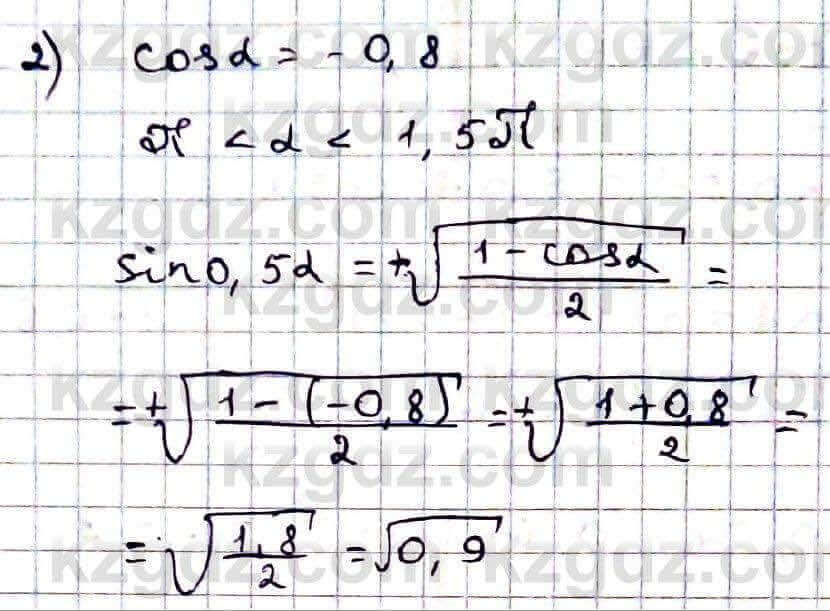 2) cosα = -0,8
π < α < 1,5π
sin0,5α = ±√((1 - cosα)/2) =
= ±√((1 - (-0,8))/2) = ±√((1 + 0,8)/2) =
= √(1,8/2) = √0,9
kzgdz.com